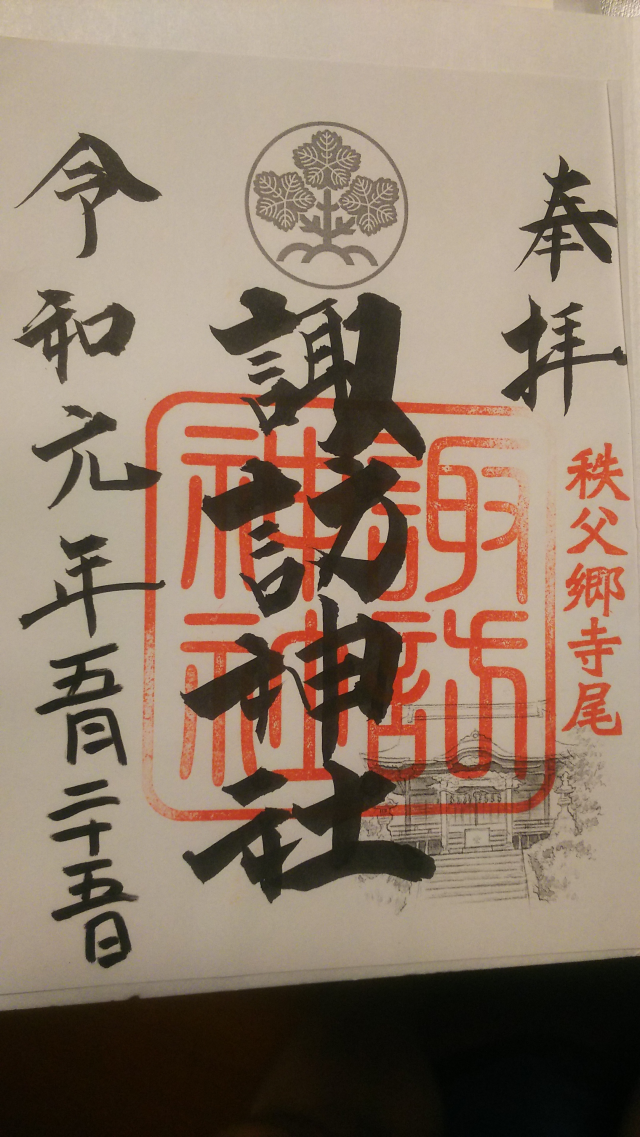 奉拝
秩父郷寺尾
諏訪神社
諏訪神社
令和元年五月二十五日